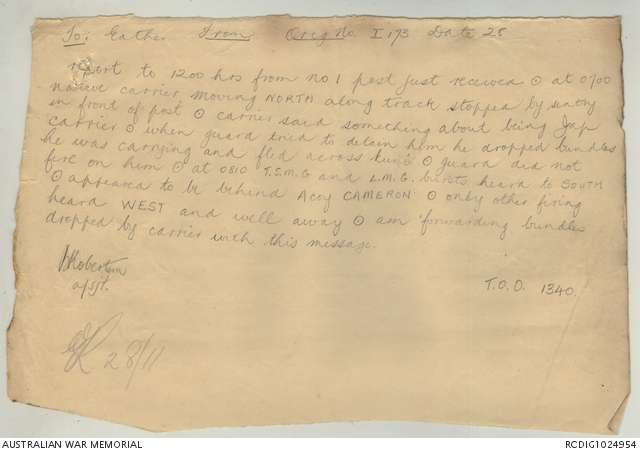 To: Eather From Orig No. I 173 Date 25
report to 1200 hrs from no 1 post just received ⊙ at 0700
native carrier moving NORTH along track stopped by sentry
in front of post ⊙ carrier said something about being Jap
carrier ⊙ when guard tried to detain him he dropped bundles
he was carrying and fled across kunai ⊙ guard did not
fire on him ⊙ at 0810 T.S.M.G and L.M.G. bursts heard to SOUTH
⊙ appeared to be behind A coy CAMERON ⊙ only other firing
heard WEST and well away ⊙ am forwarding bundles
dropped by carrier with this message.
Robertson
a/sjt.
T.O.O. 1340.
28/11
AUSTRALIAN WAR MEMORIAL
RCDIG1024954